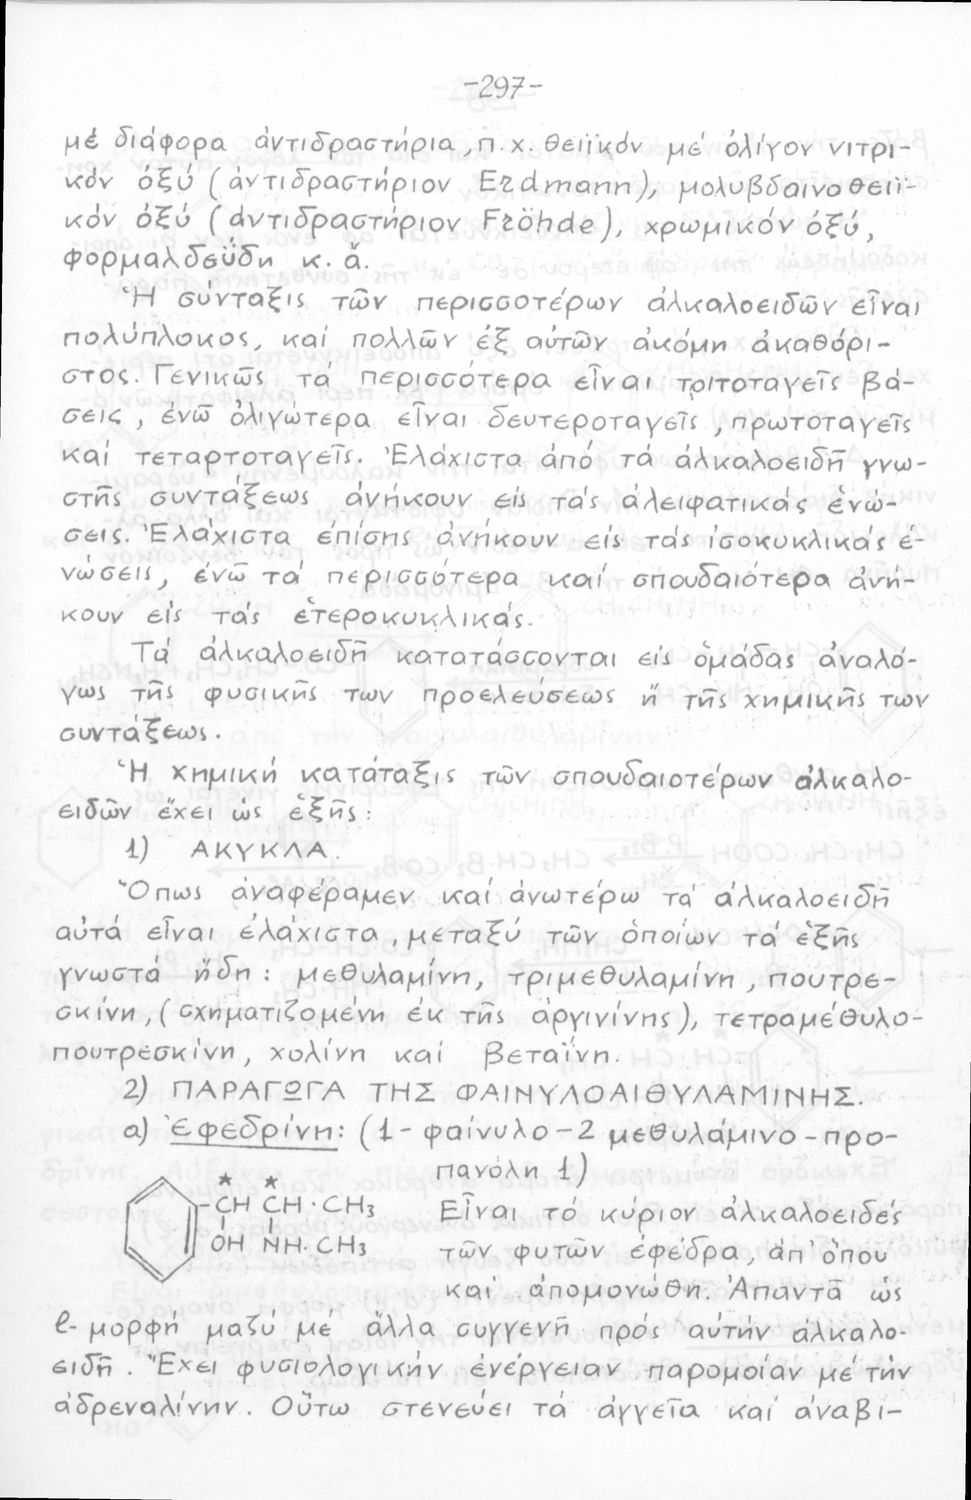 -297-
μέ διάφορα ἀντιδραστήρια, π.χ. θειϊκόν μέ ὀλίγον νιτρι-
κόν ὀξύ (ἀντιδραστήριον Erdmann), μολυβδαινοθειϊ-
κόν ὀξύ (ἀντιδραστήριον Fröhde), χρωμικόν ὀξύ,
φορμαλδεΰδη κ.ἄ.
Ἡ σύνταξις τῶν περισσοτέρων ἀλκαλοειδῶν εἶναι
πολύπλοκος, καί πολλῶν ἐξ αὐτῶν ἀκόμη ἀκαθόρι-
στος. Γενικῶς τά περισσότερα εἶναι τριτοταγεῖς βά-
σεις, ἐνῶ ὀλιγώτερα εἶναι δευτεροταγεῖς, πρωτοταγεῖς
καί τεταρτοταγεῖς. Ἐλάχιστα ἀπό τά ἀλκαλοειδῆ γνω-
στῆς συντάξεως ἀνήκουν είς τάς ἀλειφατικάς ἑνώ-
σεις. Ἐλάχιστα ἐπίσης ἀνήκουν εἰς τάς ἰσοκυκλικάς ἑ-
νώσεις, ἐνῶ τά περισσότερα καί σπουδαιότερα ἀνή-
κουν εἰς τάς ἑτεροκυκλικάς.
Τά ἀλκαλοειδῆ κατατάσσονται εἰς ὁμάδας ἀναλό-
γως τῆς φυσικῆς των προελεύσεως ἤ τῆς χημικῆς των
συντάξεως.
Ἡ χημική κατάταξις τῶν σπουδαιοτέρων ἀλκαλο-
ειδῶν ἔχει ὡς ἑξῆς:
1) ΑΚΥΚΛΑ.
Ὅπως ἀναφέραμεν καί ἀνωτέρω τά ἀλκαλοειδῆ
αὐτά εἶναι ἐλάχιστα, μεταξύ τῶν ὁποίων τά ἑξῆς
γνωστά ἤδη: μεθυλαμίνη, τριμεθυλαμίνη, πουτρε-
σκίνη, (σχηματιζομένη ἐκ τῆς ἀργινίνης), τετραμέθυλο-
πουτρεσκίνη, χολίνη καί βεταΐνη.
2) ΠΑΡΑΓΩΓΑ ΤΗΣ ΦΑΙΝΥΛΟΑΙΘΥΛΑΜΙΝΗΣ.
α) Ἐφεδρίνη: (1-φαίνυλο-2 μεθυλάμινο-προ-
πανόλη 1)
* *
CH CH · CH₃
OH NH · CH₃
Εἶναι τό κύριον ἀλκαλοειδές
τῶν φυτῶν ἐφέδρα, ἀπ' ὅπου
καί ἀπομονώθη. Ἀπαντᾶ ὡς
l-μορφή μαζύ μέ ἄλλα συγγενῆ πρός αὐτήν ἀλκαλο-
ειδῆ. Ἔχει φυσιολογικήν ἐνέργειαν παρομοίαν μέ τήν
ἀδρεναλίνην. Οὕτω στενεύει τά ἀγγεῖα καί ἀναβι-